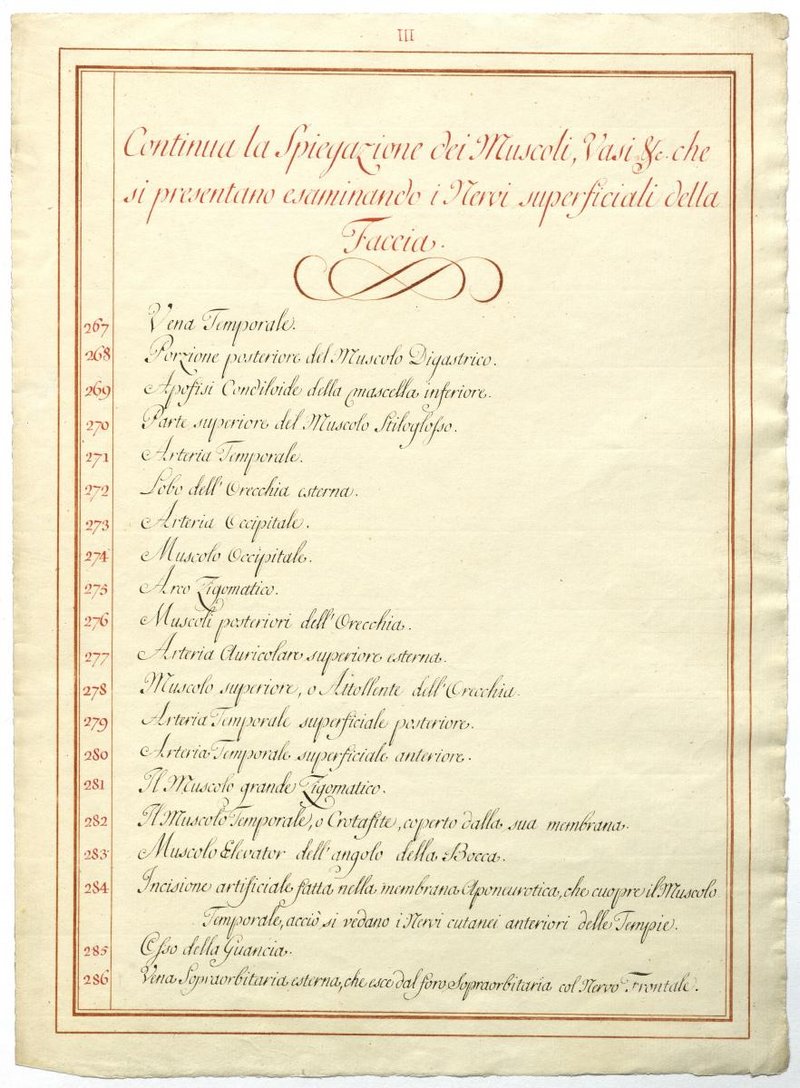 III
Continua la Spiegazione dei Muscoli, Vasi &c. che
si presentano esaminando i Nervi superficiali della
Faccia.
267 Vena Temporale.
268 Porzione posteriore del Muscolo Digastrico.
269 Apofisi Condiloide della mascella inferiore.
270 Parte superiore del Muscolo Stiloglosso.
271 Arteria Temporale.
272 Lobo dell' Orecchia esterna.
273 Arteria Occipitale.
274 Muscolo Occipitale.
275 Arco Zigomatico.
276 Muscoli posteriori dell' Orecchia.
277 Arteria Auricolare superiore esterna.
278 Muscolo superiore, o Attollente dell' Orecchia.
279 Arteria Temporale superficiale posteriore.
280 Arteria Temporale superficiale anteriore.
281 Il Muscolo grande Zigomatico.
282 Il Muscolo Temporale, o Crotafite, coperto dalla sua membrana.
283 Muscolo Elevator dell' angolo della Bocca.
284 Incisione artificiale fatta nella membrana Aponeurotica, che cuopre il Muscolo
Temporale, acciò si vedano i Nervi cutanei anteriori delle Tempie.
285 Osso della Guancia.
286 Vena Sopraorbitaria esterna, che esce dal foro Sopraorbitaria col Nervo Frontale.